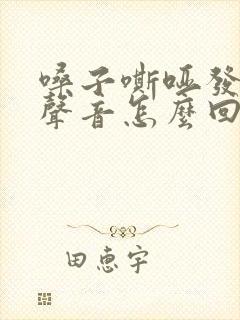 嗓子嘶啞發
聲音怎麼回
田惠宇